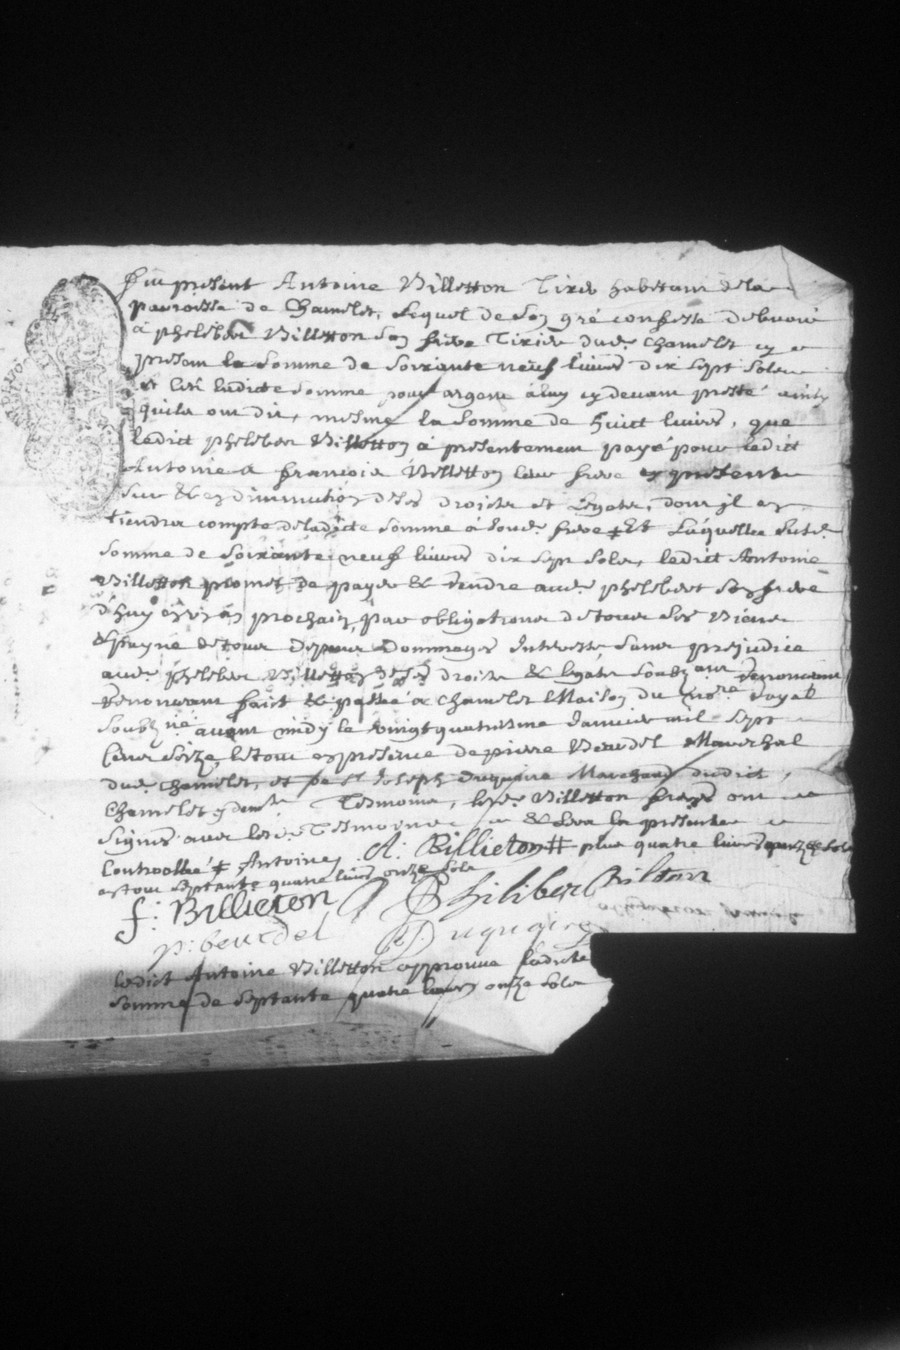 Fut present Antoine Billetton Tixier habitant de la
parroisse de Chamelet, Lequel de son gré confesse debvoir
à Phelebert Billetton son frere Tixier dud. Chamelet cy
present la somme de soixante neuf livres dix sept solz
et ce ladicte somme pour argent à luy cy devant presté ainsy
quilz ont dit, mesme la somme de huict livres, que
ledict Phelebert Billetton à presentement payé pour ledict
Antoine a françois Billetton leur frere cy present
sur & en diminution de ses droictz et Legatz, dont il en
tiendra compte de ladicte somme à sond. frere + Et Laquelle susd.
somme de soixante neuf livres dix sept solz, ledict Antoine
Billetton promet de payer & rendre aud. Phelebert son frere
d'huy en un an prochain, par obligation de tous ses biens
& payne de tous despens dommages Interestz sans prejudice
aud. Phelebert Billetton de ses droictz & legatz soubz
renoncant faict & passé a Chamelet Maison du no.re Royal
soubz.né avant midy le vingt quatriesme Janvier mil sept
cens seize, le tout en presence de pierre Beurdel Mareschal
dud. Chamelet, et de s.r Joseph Duquaire Marchand dudict
Chamelet y dem.t Tesmoins, lesd. Billetton freres ont
signés avec lesd. Tesmoins & sera la presente
Controollée + Antoine A: Billieton # plus quatre livres quinze solz
en tout septante quatre livres onze solz
f: Billieton Philiber Bilton
p: beurdel Duquaire
ledict Antoine Billetton approuve ladicte
somme de septante quatre livres onze solz